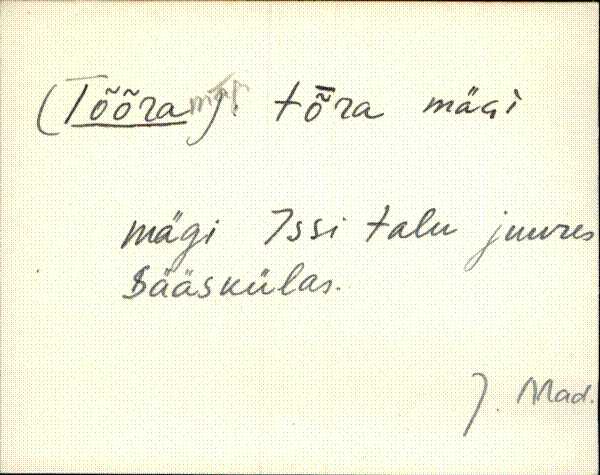 (Tõõra mägi). tȭra mäGi
mägi Issi talu juures
Sääskülas.
J. Mad.